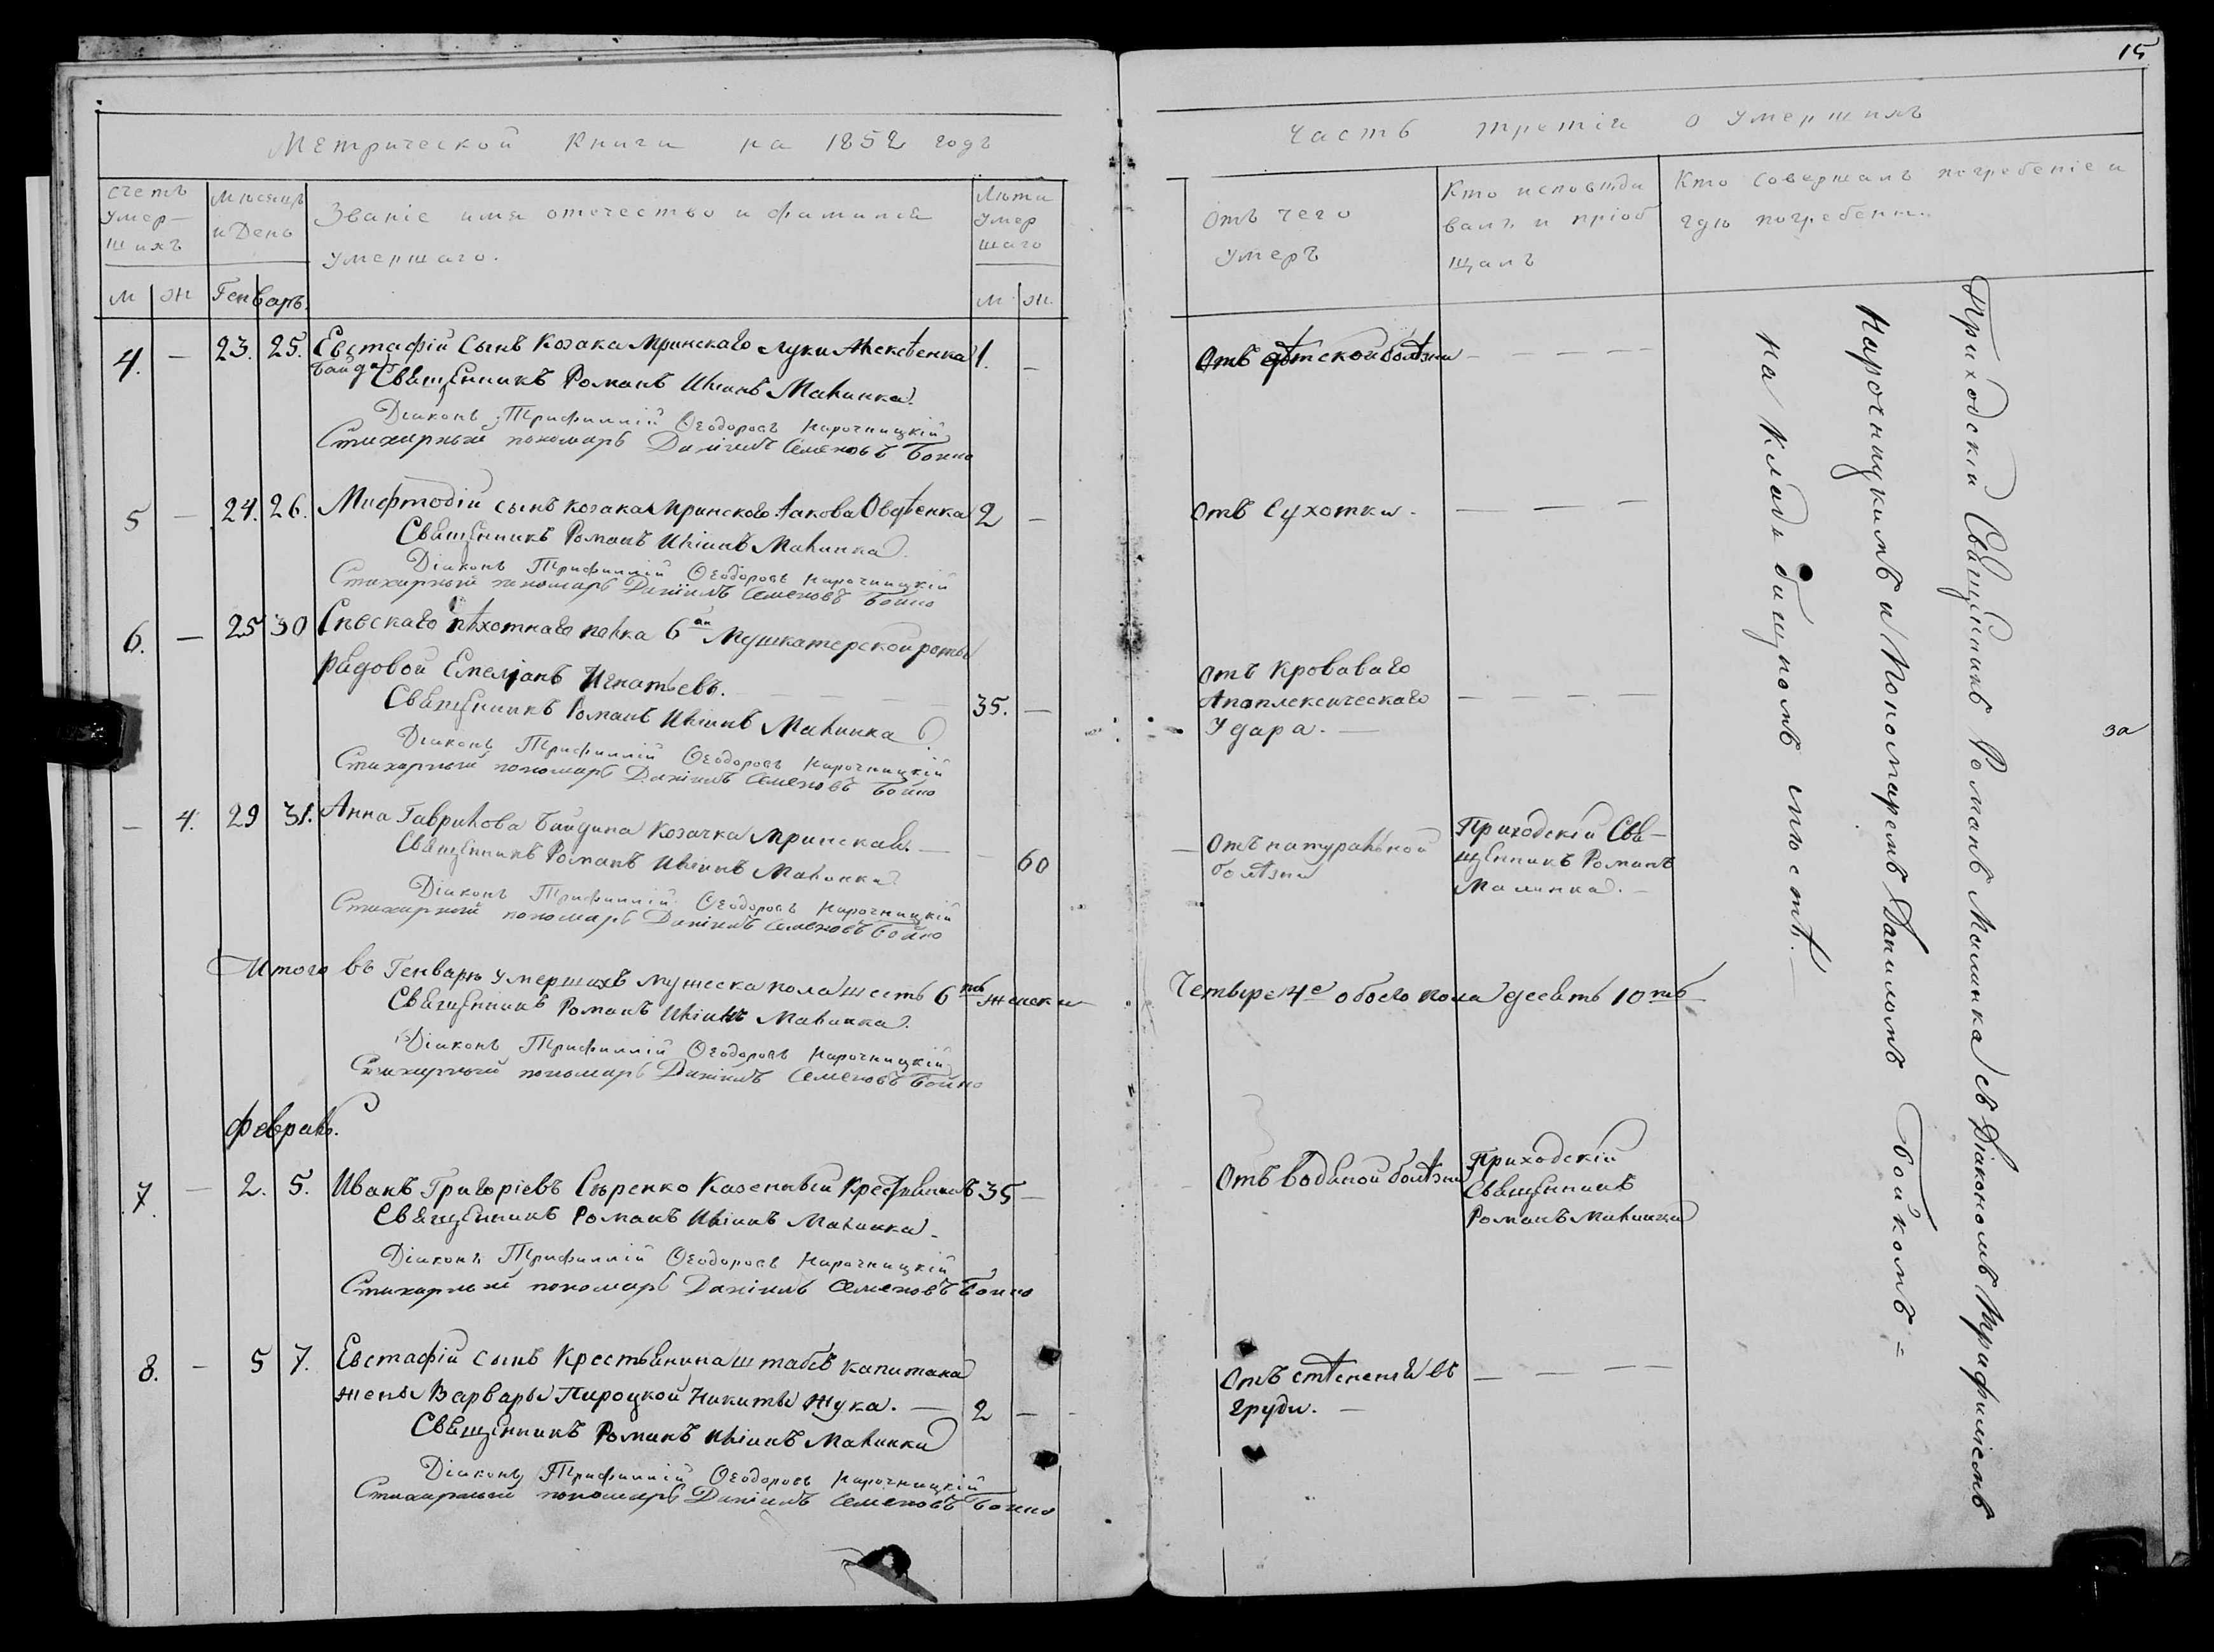 15
Метрической Книги на 1852 годъ
Часть третія о умершихъ
Счетъ умер-
шихъ
Мѣсяцъ
и День
Званіе имя отечество и фамилія
умершаго.
Лѣта
умер
шаго
Отъ чего
умеръ
Кто исповѣды
валъ и пріоб
щалъ
Кто совершалъ погребеніе и
гдѣ погребены.
м ж Генварь. м ж
4. — 23. 25. Евстафій сынъ Козака Мринскаго Луки 1. —
Священникъ Романъ Иліинъ Малинка.
Діаконъ Трифиллій Ѳеодоровъ Нарочницкій
Стихарный пономарь Даніилъ Семеновъ Бойко
Отъ дѣтской болѣзни — — — —
5 — 24. 26. Мефтодій сынъ козака Мринского Іакова Овдѣенка 2 —
Священникъ Романъ Иліинъ Малинка.
Діаконъ Трифиллій Ѳеодоровъ Нарочницкій
Стихарный пономарь Даніилъ Семеновъ Бойко
Отъ Сухотки. — — —
6. — 25 30 Сѣвскаго пѣхотнаго полка 6ой Мушкатерской роты
рядовой Емеліанъ Игнатьевъ. — — — 35. —
Священникъ Романъ Иліинъ Малинка
Діаконъ Трифиллій Ѳеодоровъ Нарочницкій
Стихарный пономарь Даніилъ Семеновъ Бойко
Отъ Кроваваго
Апоплексическаго
Удара. — — — — —
— 4. 29 31. Анна Гаврилова Байдина Козачка Мринская. — — 60
Священникъ Романъ Иліинъ Малинка
Діаконъ Трифиллій Ѳеодоровъ Нарочницкій
Стихарный пономарь Даніилъ Семеновъ Бойко
Отъ натуральной
болѣзни
Приходскій Свя-
щенникъ Романъ
Малинка. —
Итого въ Генварѣ умершихъ мужеска пола шесть 6ть женска
Четыре 4е обоего пола десять 10ть
Священникъ Романъ Иліинъ Малинка.
Діаконъ Трифиллій Ѳеодоровъ Нарочницкій
Стихарный пономарь Даніилъ Семеновъ Бойко
Февраль.
7. — 2. 5. Иванъ Григоріевъ Сѣренко Казенный Крестьянинъ 35 —
Священникъ Романъ Иліинъ Малинка.
Діаконъ Трифиллій Ѳеодоровъ Нарочницкій
Стихарный пономарь Даніилъ Семеновъ Бойко
Отъ водяной болѣзни
Приходскій
Священникъ
Романъ Малинка
8. — 5 7. Евстафій сынъ Крестьянина штабсъ капитана
жены Варвары Пироцкой Никиты Жука. — 2 —
Священникъ Романъ Иліинъ Малинка
Діаконъ Трифиллій Ѳеодоровъ Нарочницкій
Стихарный пономарь Даніилъ Семеновъ Бойко
Отъ стѣсненія въ
груди. — — — — —
Приходскій Священникъ Романъ Малинка съ Діакономъ Трифиліемъ
Нарочницкимъ и Пономаремъ Даниломъ Бойкомъ =
на кладбищномъ мѣстѣ. —
за